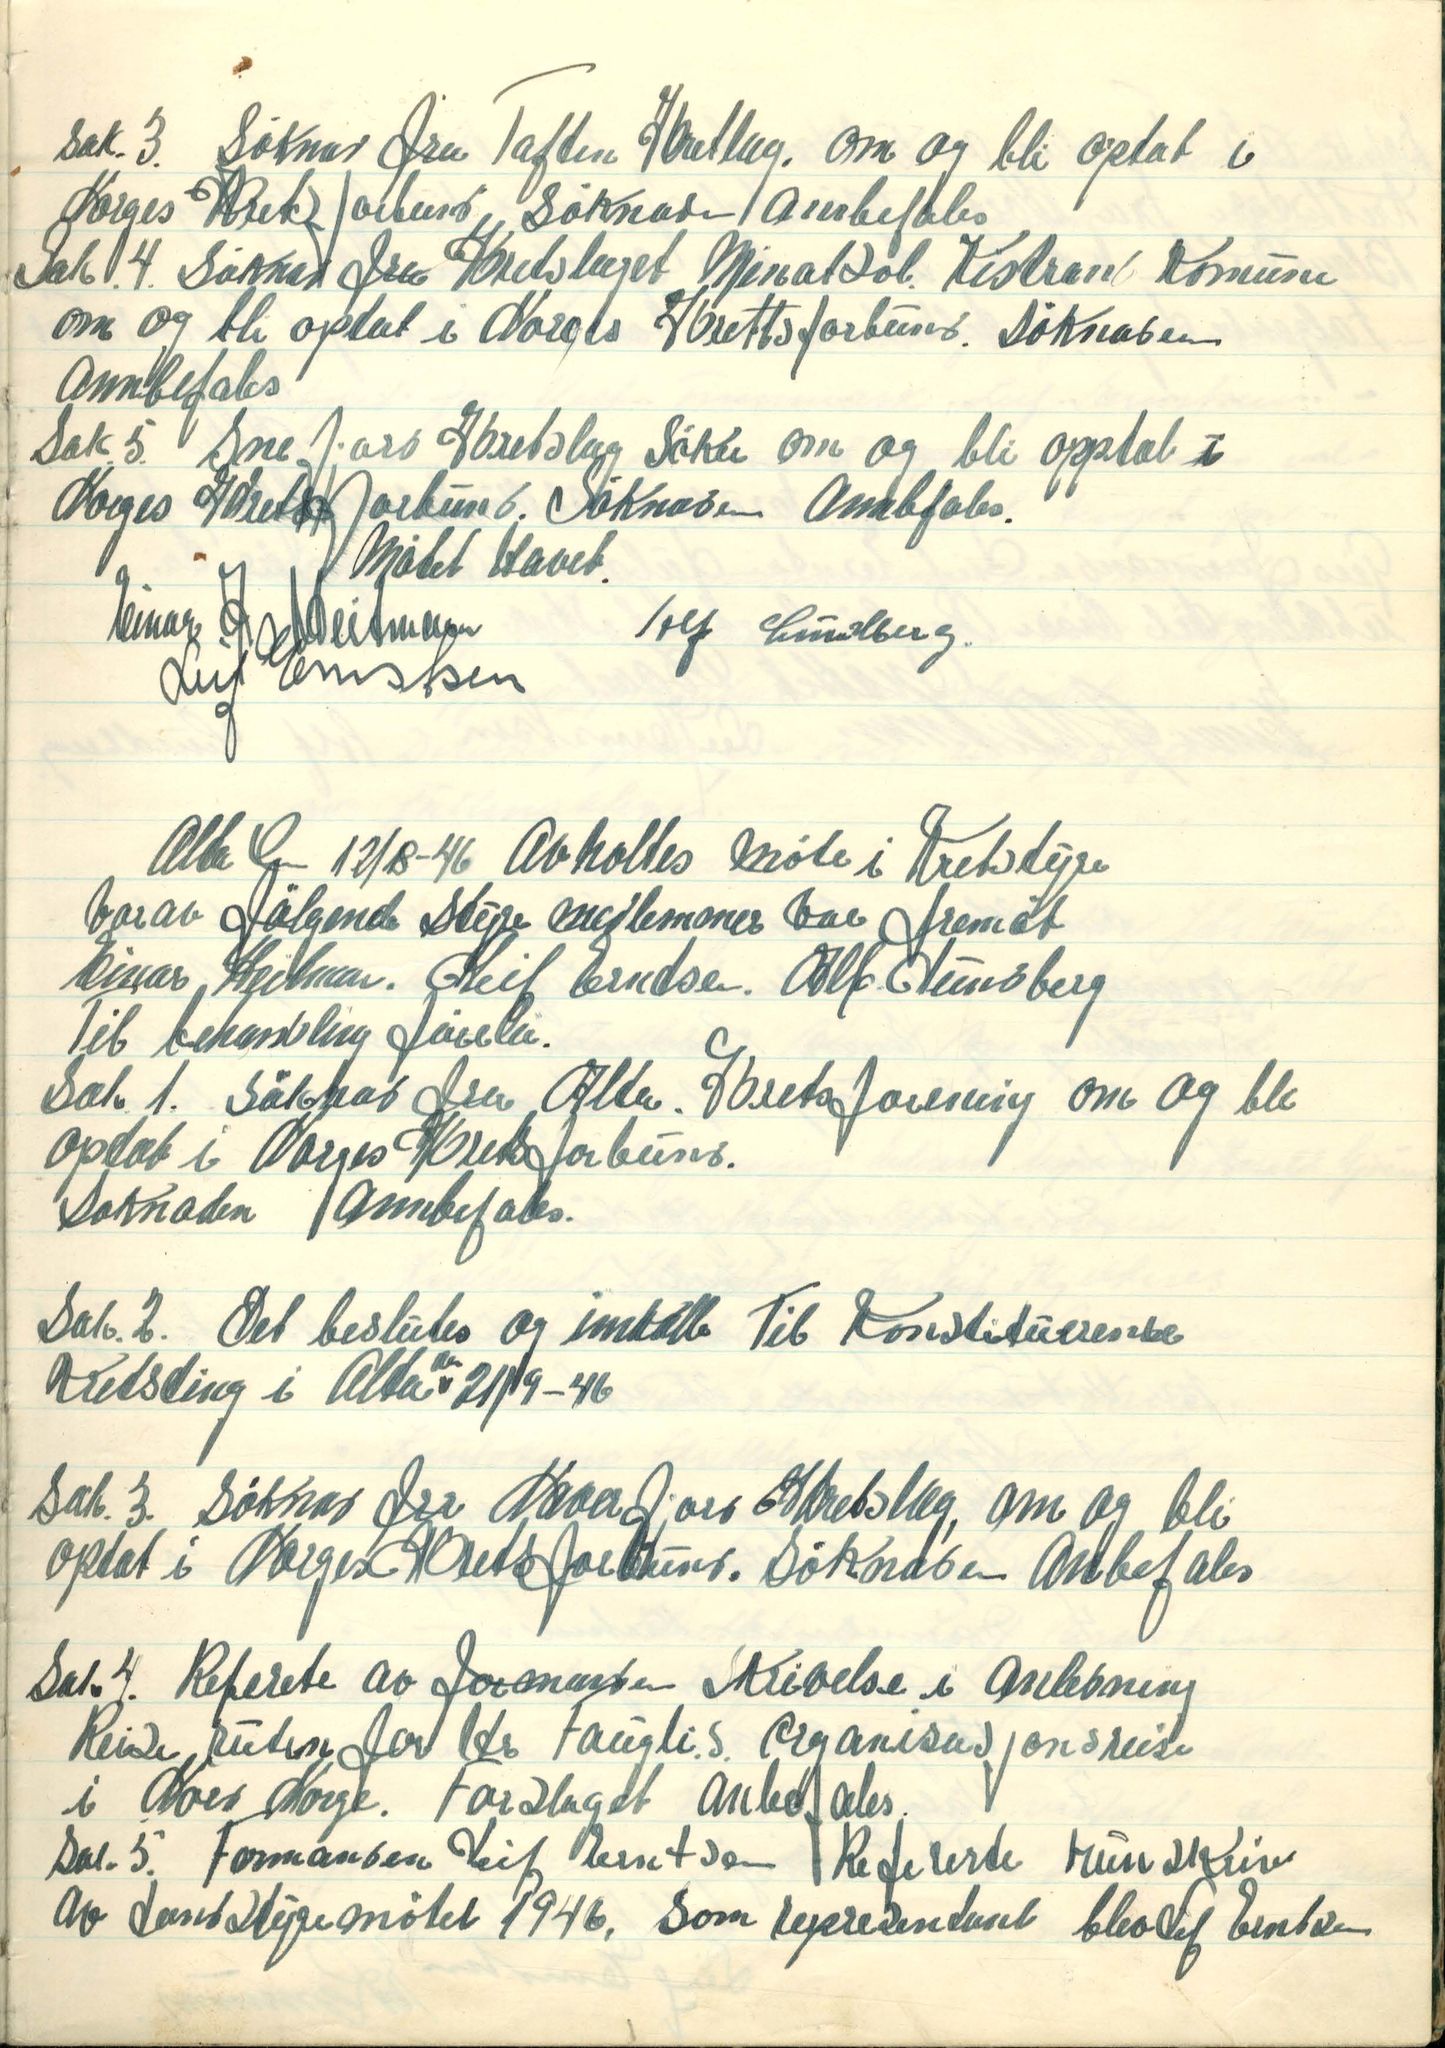 Sak. 3. Söknad fra Taften Idretlag. om og bli optat i
Norges Idretsforbund, Söknaden Annbefales
Sak. 4. Söknad fra Idretslaget Minatsol. Kistrand Komune
om og bli optat i Norges Idrettsforbund. Söknaden
Annbefales
Sak. 5. Snefjord Idretslag Söker om og bli opptat i
Norges Idretsforbund. Söknaden Annbefales.
Mötet Hævet.
Einar Heitmann Alf Sundberg.
Leif Erntsen
Alta 12/8-46 Avholtes möte i Kretstyre
vorav fölgende styre medlemmer var fremöt
Einar Heitman. Leif Erndsen. Alf Sundberg
Til behandling förelå.
Sak. 1. Söknad fra Alta. Idretsforening om og bli
optat i Norges Idretsforbund.
Söknaden Annbefales.
Sak. 2. Det beslutes og innkalle Til Konstituerende
Kretsting i Alta den 21/9-46
Sak. 3. Söknad fra Idretslag, om og bli
optat i Norges Idretsforbund. Söknaden Anbefales
Sak. 4. Referete av formanden Skrivelse i Anledning
Reise ruten for Hr Faugli.s. Organisasjonsreise
i Nord Norge. Forslaget Anbefales.
Sak. 5. Formanden Leif Erntsen Refererte rundskriv
av Landsstyremötet 1946, Som representant blev Leif Erntsen